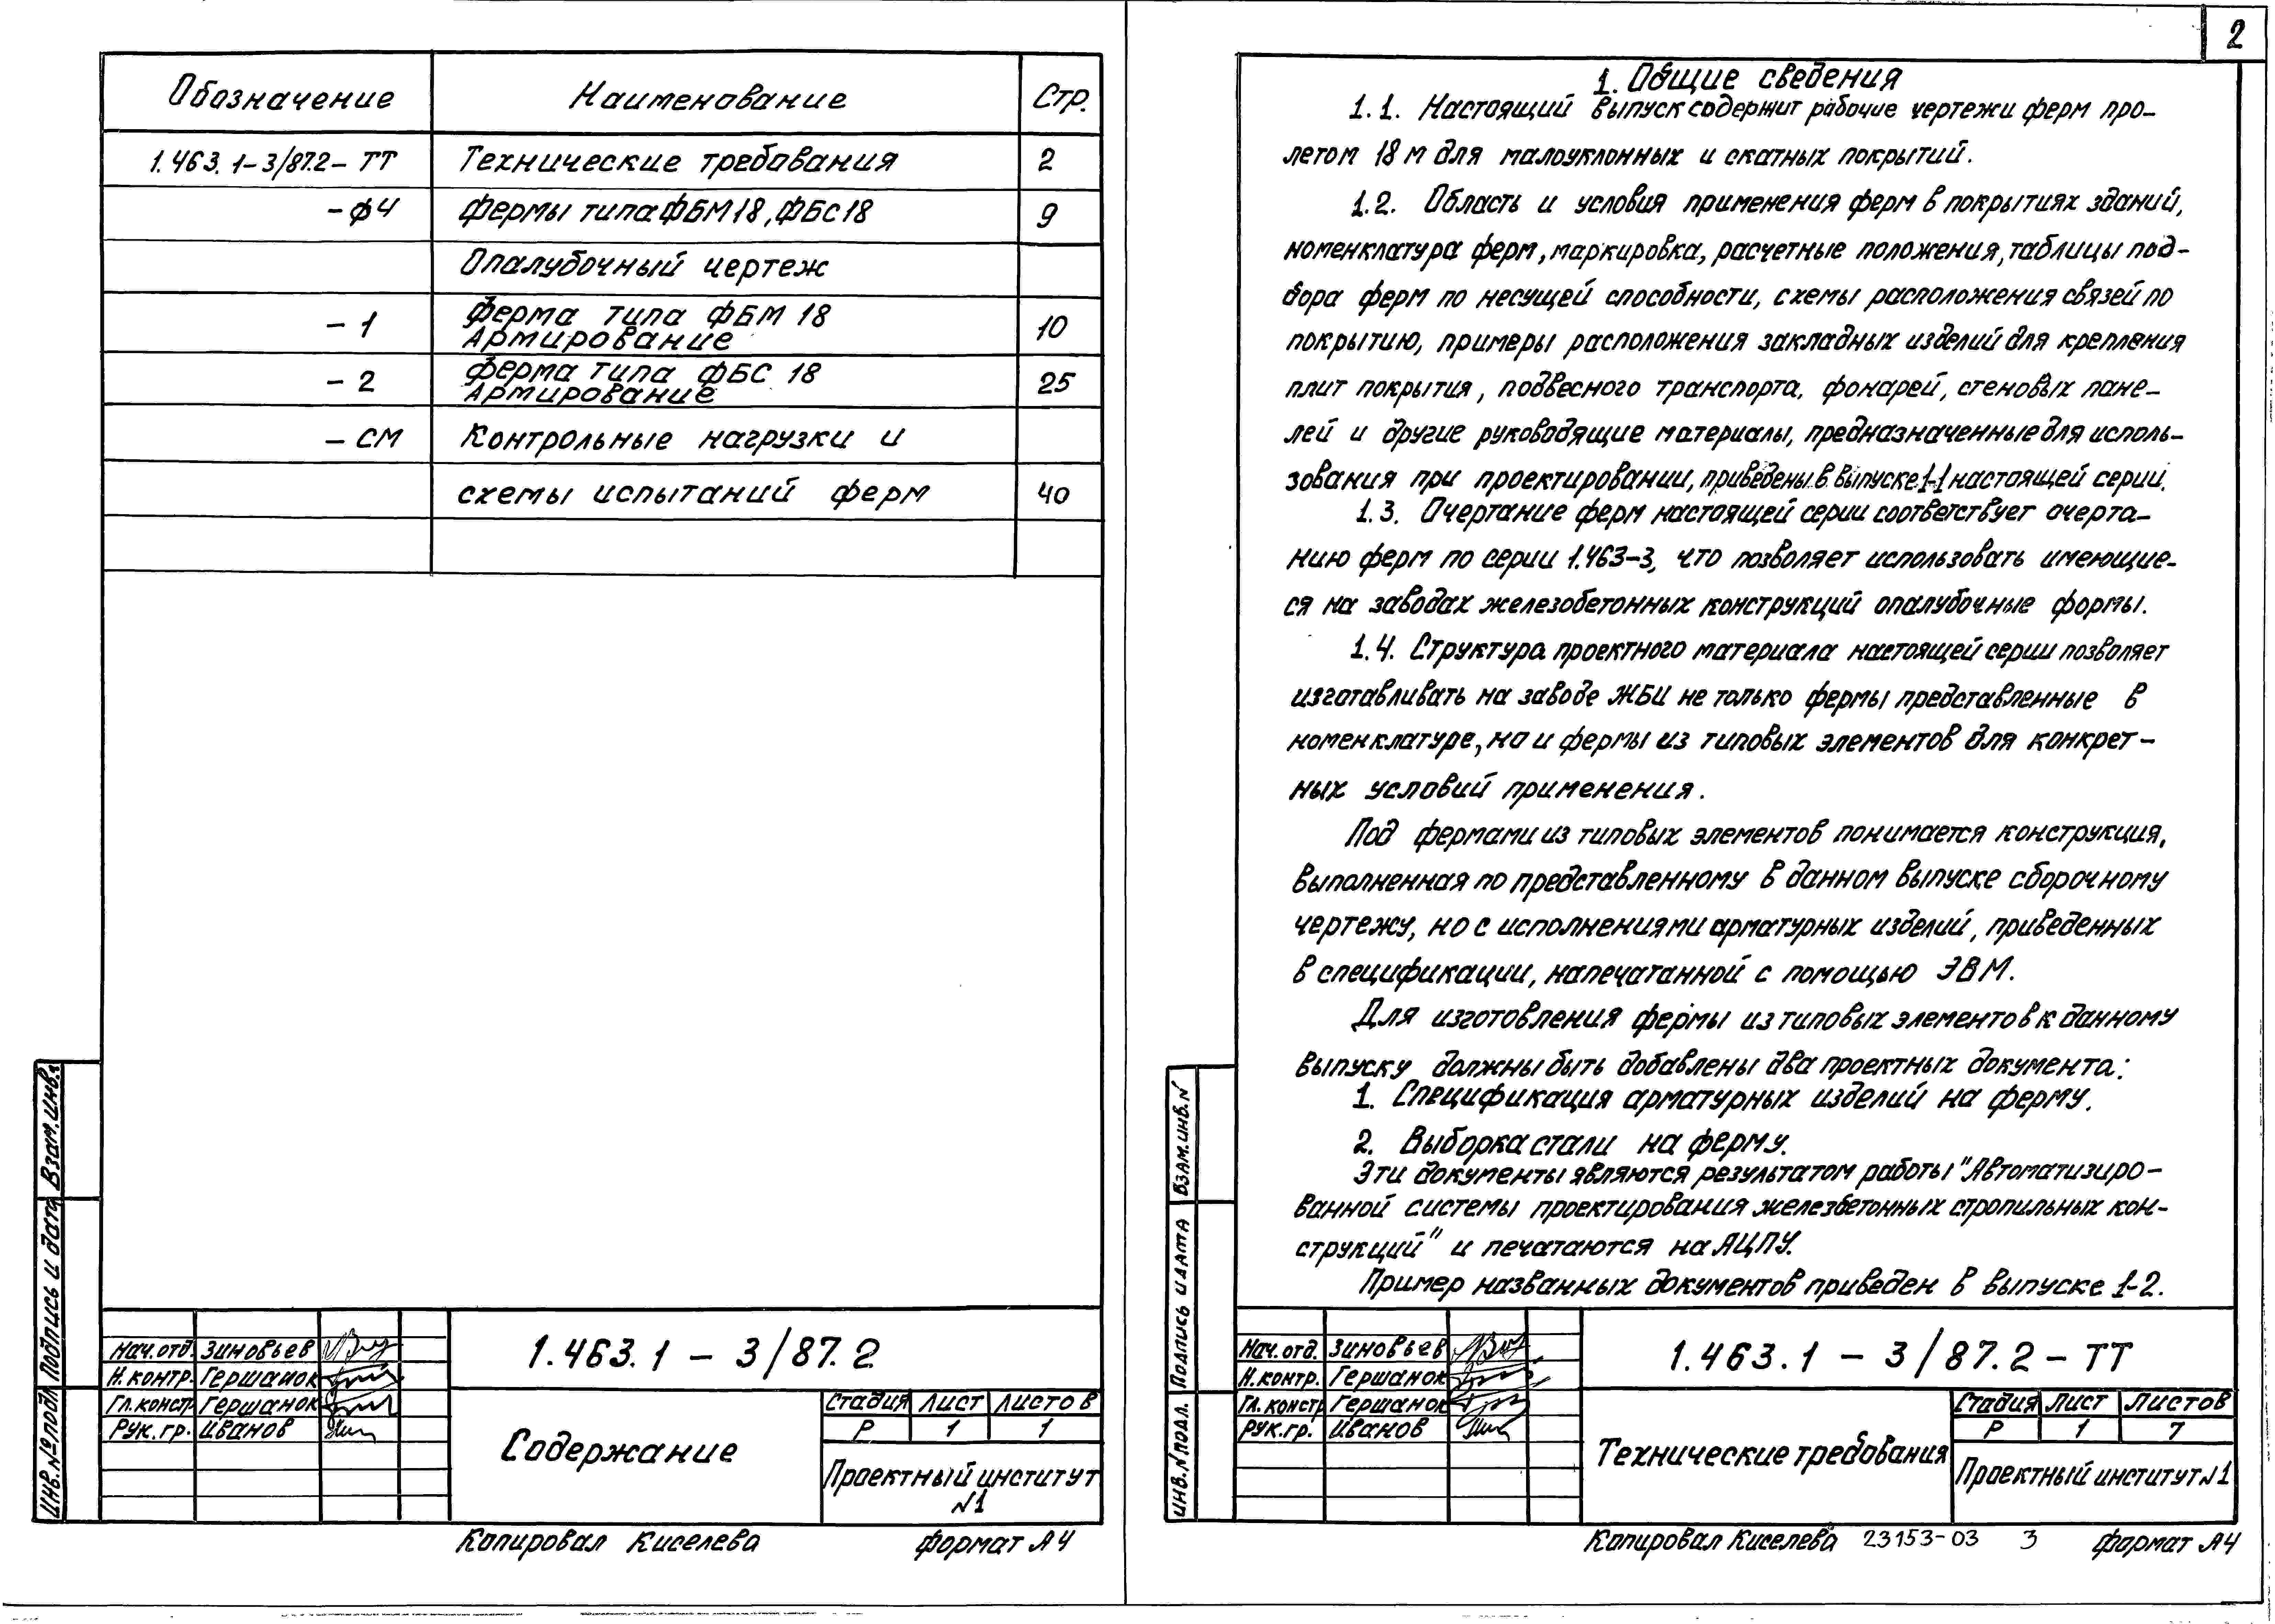 Обозначение Наименование Стр.
1.463.1-3/87.2-ТТ Технические требования 2
-ФЧ Фермы типа ФБМ18, ФБС18 9
Опалубочный чертеж
-1 Ферма типа ФБМ 18
Армирование 10
-2 Ферма типа ФБС 18
Армирование 25
-СМ Контрольные нагрузки и
схемы испытаний ферм 40
Взам.инв.
Подпись и дата
Инв.№подл.
Нач.отд. Зиновьев
Н.контр. Гершанок
Гл.констр. Гершанок
Рук.гр. Иванов
1.463.1 - 3/87.2
Содержание
Стадия Лист Листов
Р 1 1
Проектный институт
N1
Копировал Киселева Формат А4
2
1. Общие сведения
1.1. Настоящий выпуск содержит рабочие чертежи ферм про-
летом 18 м для малоуклонных и скатных покрытий.
1.2. Область и условия применения ферм в покрытиях зданий,
номенклатура ферм, маркировка, расчетные положения, таблицы под-
бора ферм по несущей способности, схемы расположения связей по
покрытию, примеры расположения закладных изделий для крепления
плит покрытия, подвесного транспорта, фонарей, стеновых пане-
лей и другие руководящие материалы, предназначенные для исполь-
зования при проектировании, приведены в выпуске 1-1 настоящей серии.
1.3. Очертание ферм настоящей серии соответствует очерта-
нию ферм по серии 1.463-3, что позволяет использовать имеющие-
ся на заводах железобетонных конструкций опалубочные формы.
1.4. Структура проектного материала настоящей серии позволяет
изготавливать на заводе ЖБИ не только фермы представленные в
номенклатуре, но и фермы из типовых элементов для конкрет-
ных условий применения.
Под фермами из типовых элементов понимается конструкция,
выполненная по представленному в данном выпуске сборочному
чертежу, но с исполнениями арматурных изделий, приведенных
в спецификации, напечатанной с помощью ЭВМ.
Для изготовления фермы из типовых элементов к данному
выпуску должны быть добавлены два проектных документа:
1. Спецификация арматурных изделий на ферму.
2. Выборка стали на ферму.
Эти документы являются результатом работы "Автоматизиро-
ванной системы проектирования железбетонных стропильных кон-
струкций" и печатаются на АЦПУ.
Пример названных документов приведен в выпуске 1-2.
Взам.инв.N
Подпись и дата
Инв.Nподл.
Нач.отд. Зиновьев
Н.контр. Гершанок
Гл.констр Гершанок
Рук.гр. Иванов
1.463.1 - 3/87.2-ТТ
Технические требования
Стадия Лист Листов
Р 1 7
Проектный институт N1
Копировал Киселева 23153-03 3 Формат А4